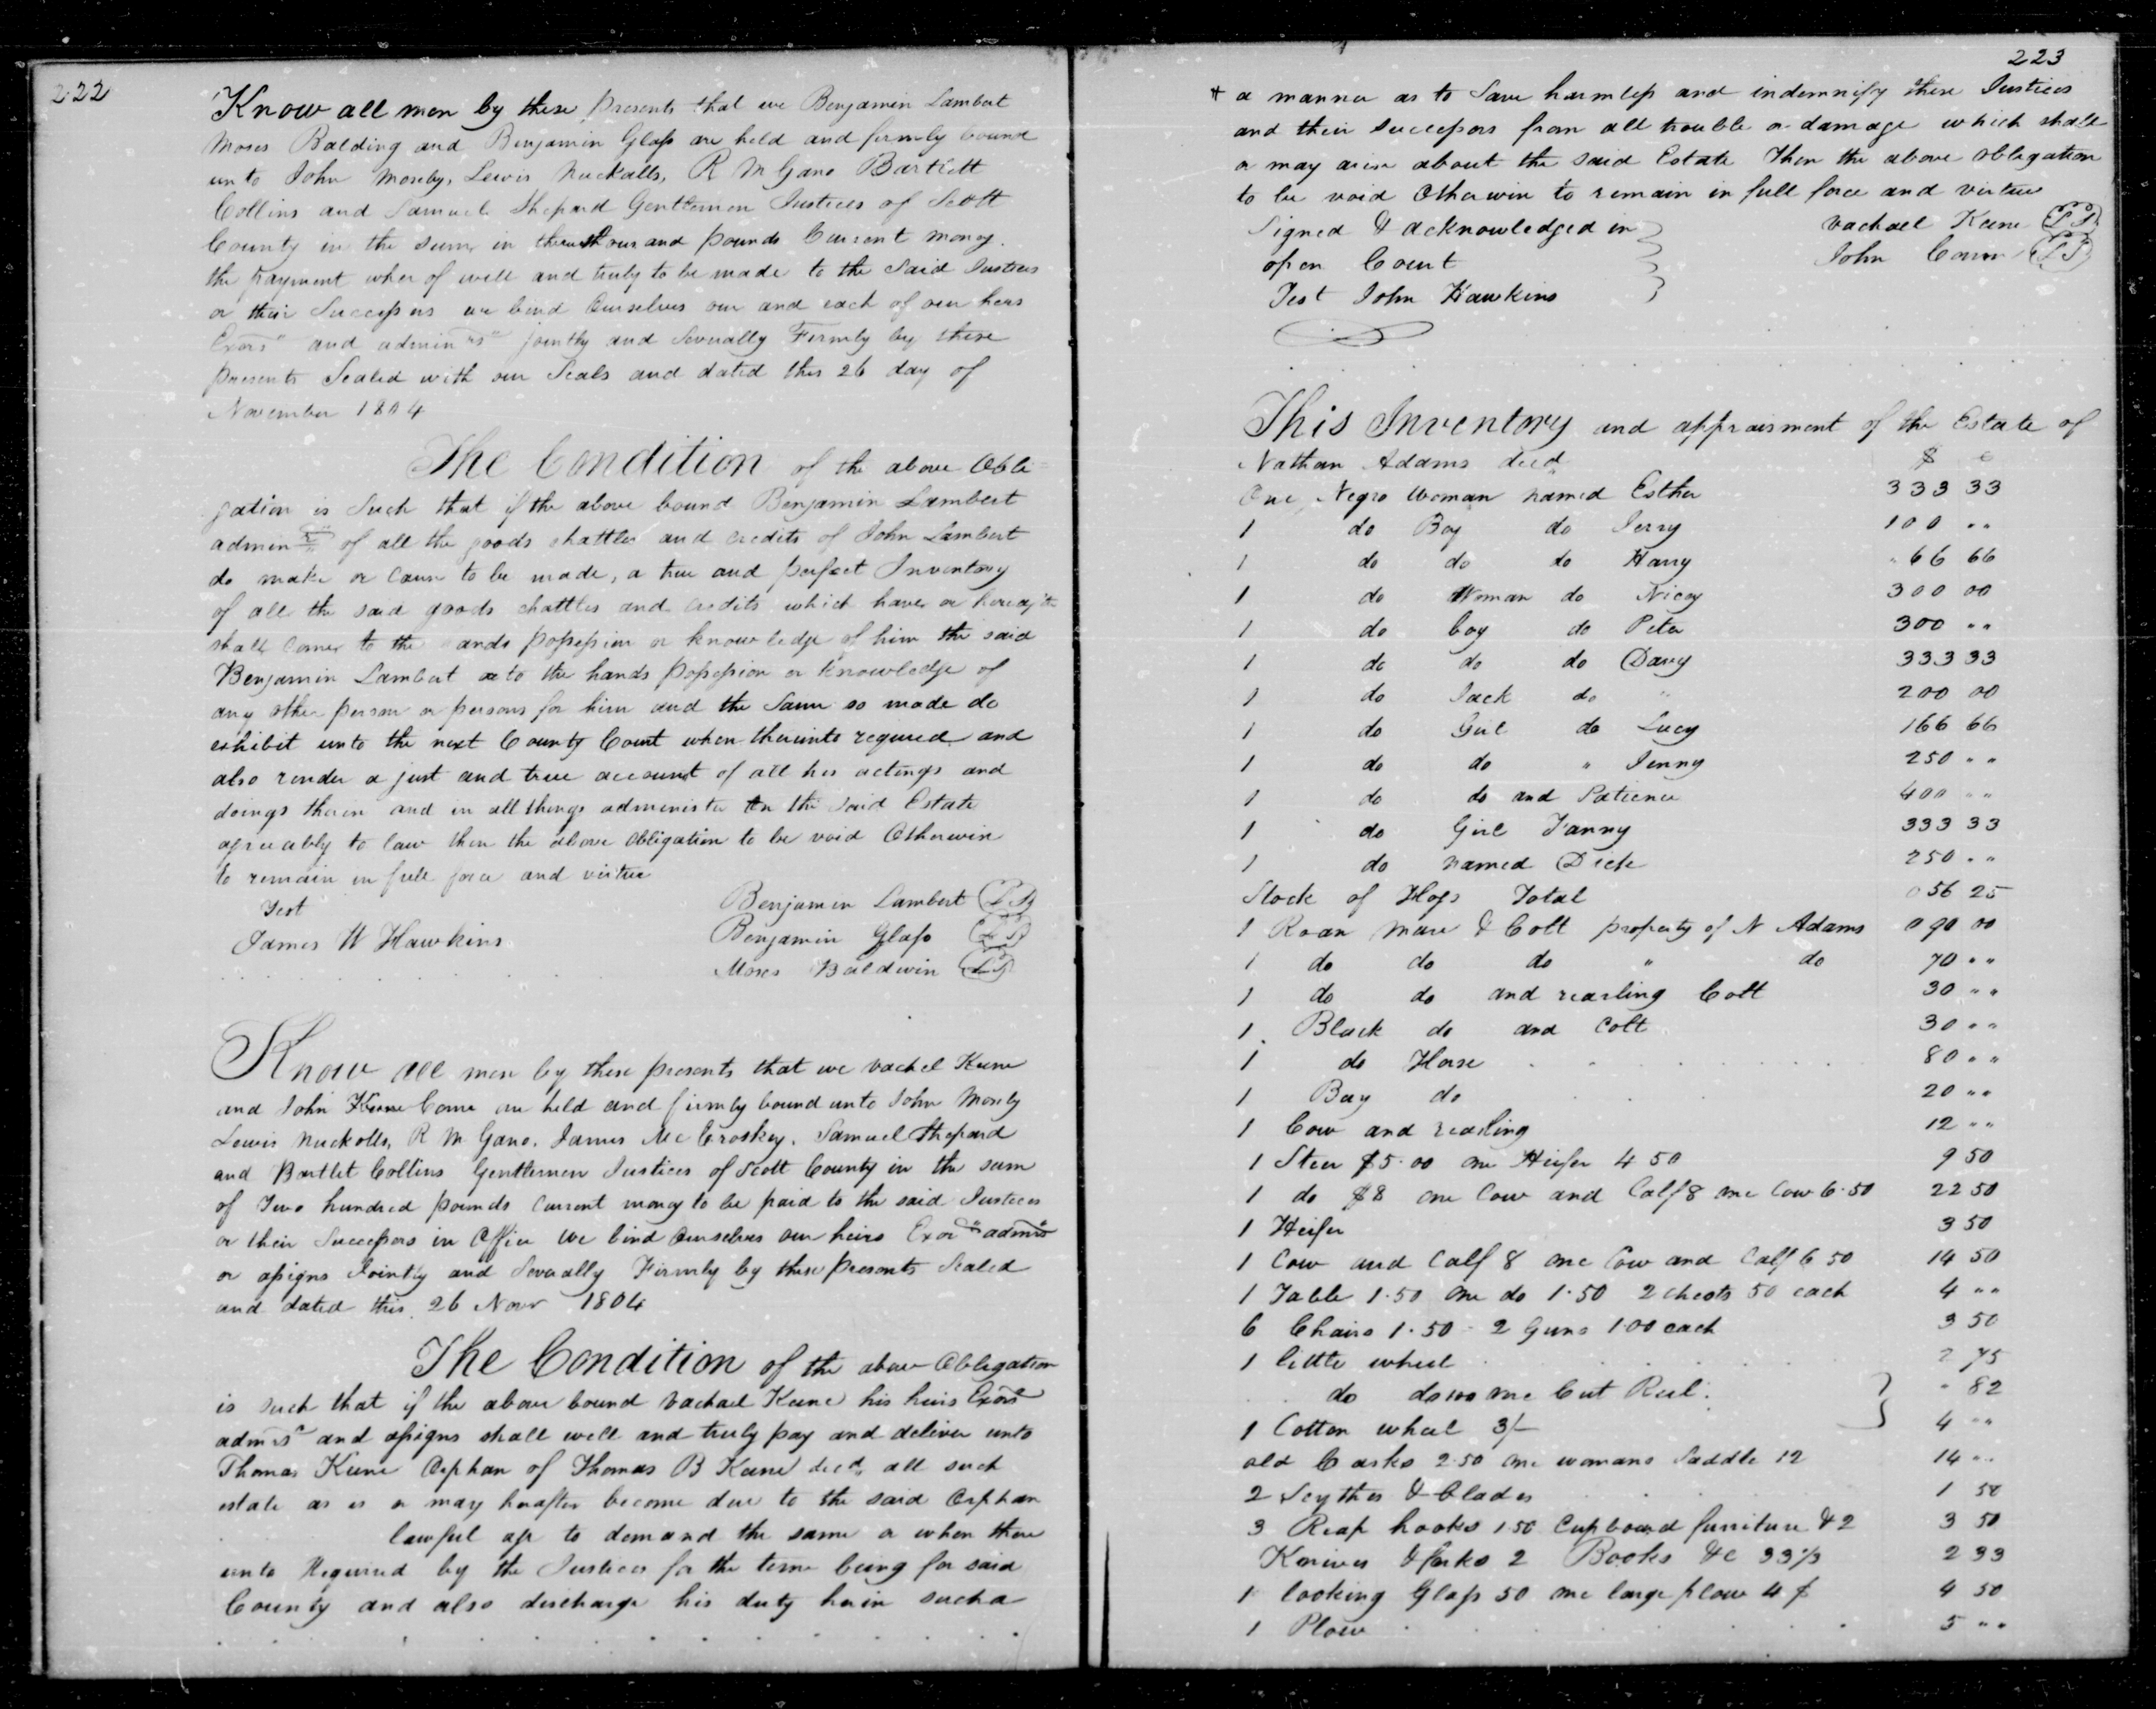 222
Know all men by these presents that we Benjamin Lambert
Moses Balding and Benjamin Glass are held and firmly bound
unto John Mosby, Lewis Nuckolls, R M Gano Bartlett
Collins and Samuel Shepard Gentlemen Justices of Scott
County in the sum in three thousand pounds Current money.
the payment wher of well and truly to be made to the said Justices
or their Successors we bind Ourselves our and each of our heirs
Exors" and adminrs" jointly and Severally Firmly by these
presents Sealed with our Seals and dated this 26 day of
November 1804
The Condition of the above Obli=
gation is Such that if the above bound Benjamin Lambert
admin of all the goods chattles and credits of John Lambert
do make or Cause to be made, a true and perfect Inventory
of all the said goods chattles and credits which have or hereafter
shall Come to the ands possession or knowledge of him the said
Benjamin Lambert or to the hands possession or knowledge of
any other person or persons for him and the Same so made do
exhibit unto the next County Court when thereunto required and
also render a just and true account of all his actings and
doings therein and in all things administer on the said Estate
agreeably to law then the above obligation to be void Otherwise
to remain in full force and virtue
Test
Benjamin Lambert
James W Hawkins
Benjamin Glass
Moses Baldwin
Know all men by these presents that we Vachel Keene
and John Keene Corne are held and firmly bound unto John Mosby
Lewis Nuckolls, R M Gano. James Mc Croskey. Samuel Shepard
and Bartlet Collins Gentlemen Justices of Scott County in the sum
of Two hundred pounds current money to be paid to the said Justices
or their Successors in Office we bind ourselves our heirs Exors admrs
or assigns Jointly and Severally Firmly by these presents Sealed
and dated this 26 Novr 1804
The Condition of the above Obligation
is such that if the above bound Vachael Keene his heirs Exors
admrs" and assigns shall well and truly pay and deliver unto
Thomas Keene Orphan of Thomas B Keene decd. all such
estate as is or may hereafter become due to the said Orphan
lawful age to demand the same or when there
unto Required by the Justices for the time being for said
County and also discharge his duty herein such a
223
a manner as to Save harmless and indemnify these Justices
and their successors from all trouble or damage which shall
or may arise about the said Estate Then the above obligation
to be void Otherwise to remain in full force and virtue
Signed & acknowledged in
Vachael Keene
open Court
John
Test John Hawkins
This Inventory and appraisment of the Estate of
Nathan Adams decd $ c
One Negro Woman named Esther 333 33
1 do Boy do Jerry 100 " "
1 do do do Harry 66 66
1 do Woman do Nicey 300 00
1 do boy do Peter 300 " "
1 do do do Davy 333 33
1 do Jack do " 200 00
1 do Girl do Lucy 166 66
1 do do " Jenny 250 " "
1 do do and Patience 400 " "
1 do Girl Fanny 333 33
1 do named Dick 250 " "
Stock of Hogs Total 056 25
1 Roan mare & Colt property of N Adams 090 00
1 do do do " do 70 " "
1 do do and yearling Colt 30 " "
1 Black do and Colt 30 " "
1 do Horse 80 " "
1 Bay do 20 " "
1 Cow and yearling 12 " "
1 Steer $5.00 one Heifer 4 50 9 50
1 do $8 one Cow and Calf 8 one Cow 6.50 22 50
1 Heifer 3 50
1 Cow and Calf 8 one Cow and Calf 6 50 14 50
1 Table 1.50 one do 1.50 2 chests 50 each 4 " "
6 Chairs 1.50 - 2 Guns 1.00 each 3 50
1 little wheel 2 75
do one Cut Reel. " 82
1 Cotton wheel 3/- 4 " "
old Casks 2.50 one womans Saddle 12 14 " "
2 Scythes & Blades 1 50
3 Reap hooks 1.50 Cupboard furniture & 2 3 50
Knives & forks 2 Books &c 33 1/3 2 33
1 looking Glass 50 one large plow 4 $ 4 50
1 Plow 5 " "